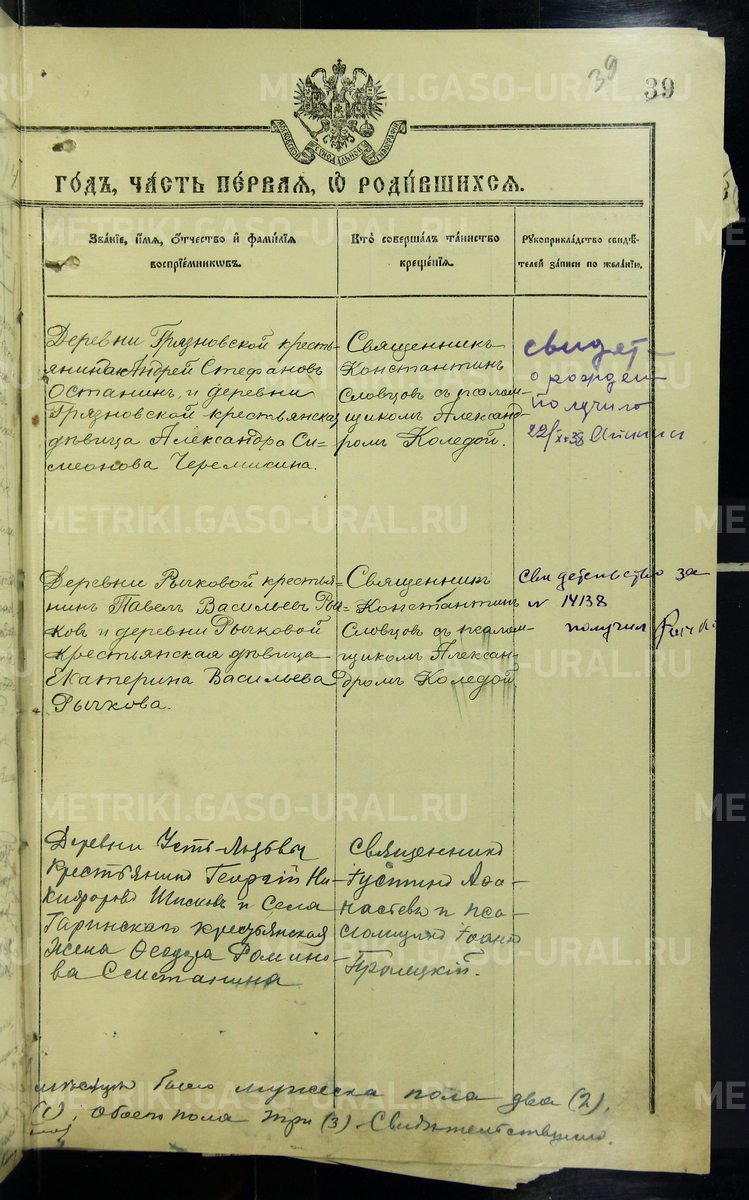 39
39
МОСКОВСКОЙ СѴНОДАЛЬНОЙ ТИПОГРАФІИ
ГОДЪ, ЧАСТЬ ПЕРВАЯ, Ѡ РОДИВШИХСЯ.
Званіе, имя, отчество и фамилія
воспріемниковъ.
Кто совершалъ таинство
крещенія.
Рукоприкладство свидѣ-
телей записи по желанію.
Деревни Грязновской кресть-
янинъ Андрей Стефановъ
Останинъ, и деревни
Грязновской крестьянская
дѣвица Александра Си-
меонова Черемисина.
Священникъ
Константинъ
Словцовъ съ псалом-
щикомъ Александ-
ромъ Коледой.
свидет-
о рожден
получил
22/X-38
Деревни Рычковой крестья-
нинъ Павелъ Васильевъ Рыч-
ковъ и деревни Рычковой
крестьянская дѣвица
Екатерина Васильева
Рычкова.
Священникъ
Константинъ
Словцовъ съ псалом-
щикомъ Алексан-
дромъ Коледой.
свидетельство за
№ 14138
получил
Деревни Усть-
крестьянинъ Георгій Ни-
кифоровъ и села
Гаринскаго крестьянская
жена Ѳеодора Фомино-
ва
Священникъ
Іустинъ Аѳа-
насьевъ и пса-
ломщикъ Іоаннъ
Троицкій.
мѣсяцѣ было мужеска пола два (2),
(1), обоего пола три (3). Свидѣтельствуемъ.
METRIKI.GASO-URAL.RU